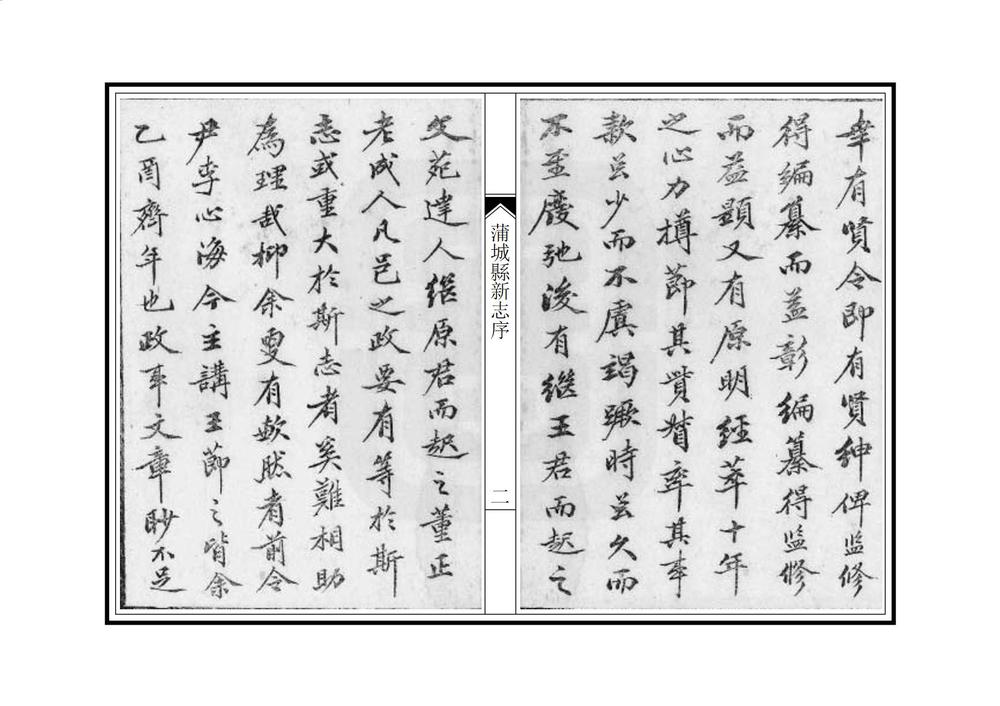 幸有賢令即有賢紳俾監修
得編纂而益彰編纂得監修
而益顯又有原明經萃十年
之心力撙節其貲督率其事
款至少而不虞竭蹶時至久而
不至廢弛後有繼王君而起之
蒲城縣新志序
二
文苑達人繼原君而起之董正
老成人凡邑之政要有等於斯
志或重大於斯志者奚難相助
為理哉抑余更有歉然者前令
尹李心海今主講王莭之皆余
乙酉齊年也政事文章眇不足